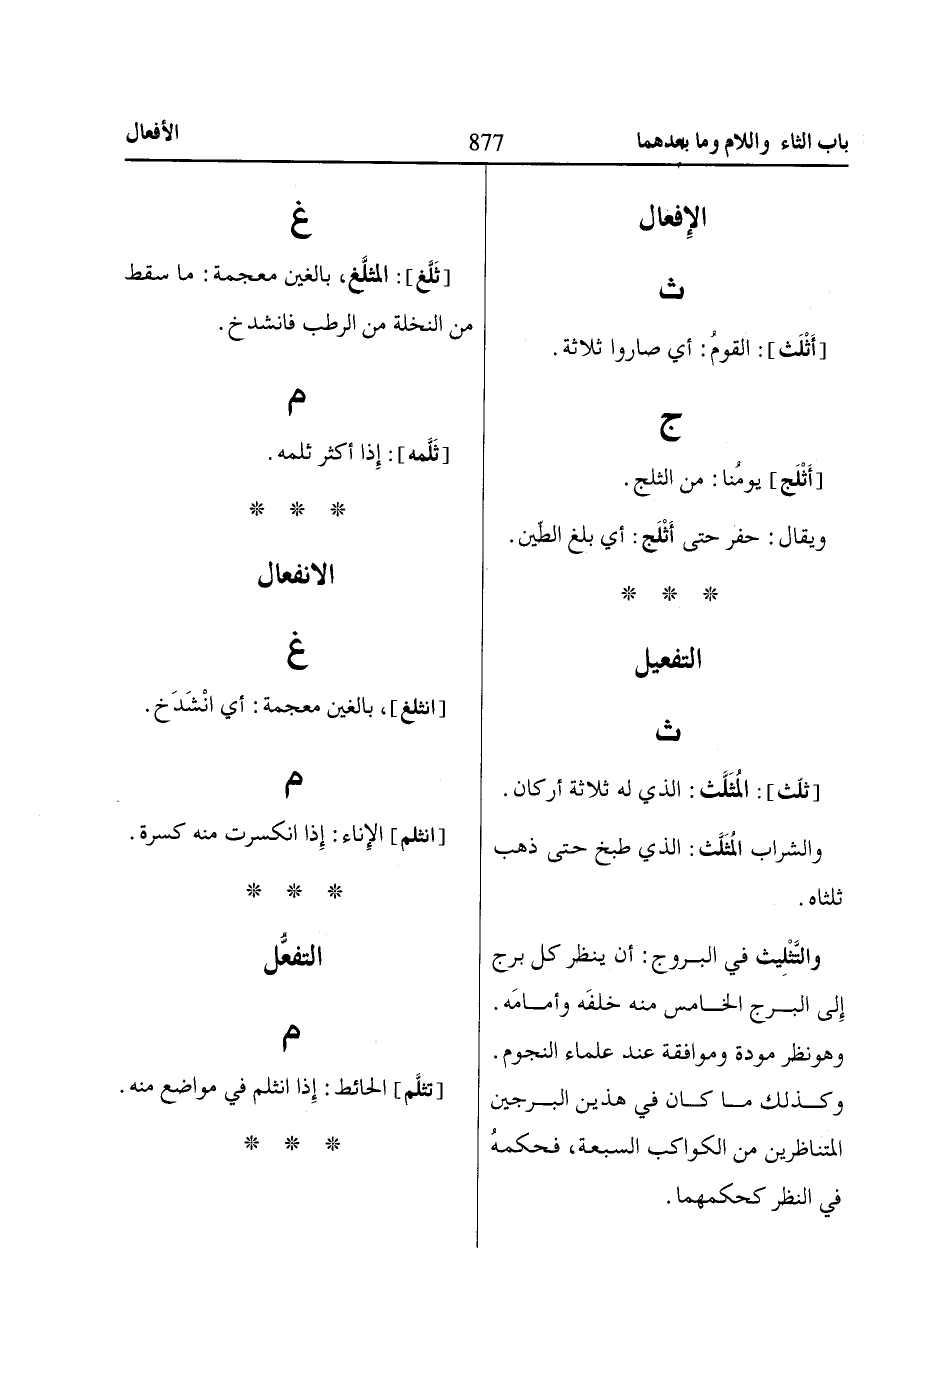 باب الثاء واللام وما بعدهما
877
الأفعال
الإِفعال
ث
[أَثْلَث]: القومُ: أي صاروا ثلاثة.
ج
[أَثْلَج] يومُنا: من الثلج.
ويقال: حفر حتى أَثْلَج: أي بلغ الطّين.
❊ ❊ ❊
التفعيل
ث
[ثلّث]: المُثَلَّث: الذي له ثلاثة أركان.
والشراب المُثَلَّث: الذي طبخ حتى ذهب
ثلثاه.
والتَّثْلِيث في البروج: أن ينظر كل برج
إِلى البرج الخامس منه خلفَه وأمامَه.
وهونظر مودة وموافقة عند علماء النجوم.
وكذلك ما كان في هذين البرجين
المتناظرين من الكواكب السبعة، فحكمهُ
في النظر كحكمهما.
غ
[ثَلَّغ]: المثلَّغ، بالغين معجمة: ما سقط
من النخلة من الرطب فانشدخ.
م
[ثَلَّمه]: إِذا أكثر ثلمه.
❊ ❊ ❊
الانفعال
غ
[انثلغ]، بالغين معجمة: أي انْشَدَخ.
م
[انثلم] الإِناء: إِذا انكسرت منه كسرة.
❊ ❊ ❊
التفعُّل
م
[تثلَّم] الحائط: إِذا انثلم في مواضع منه.
❊ ❊ ❊